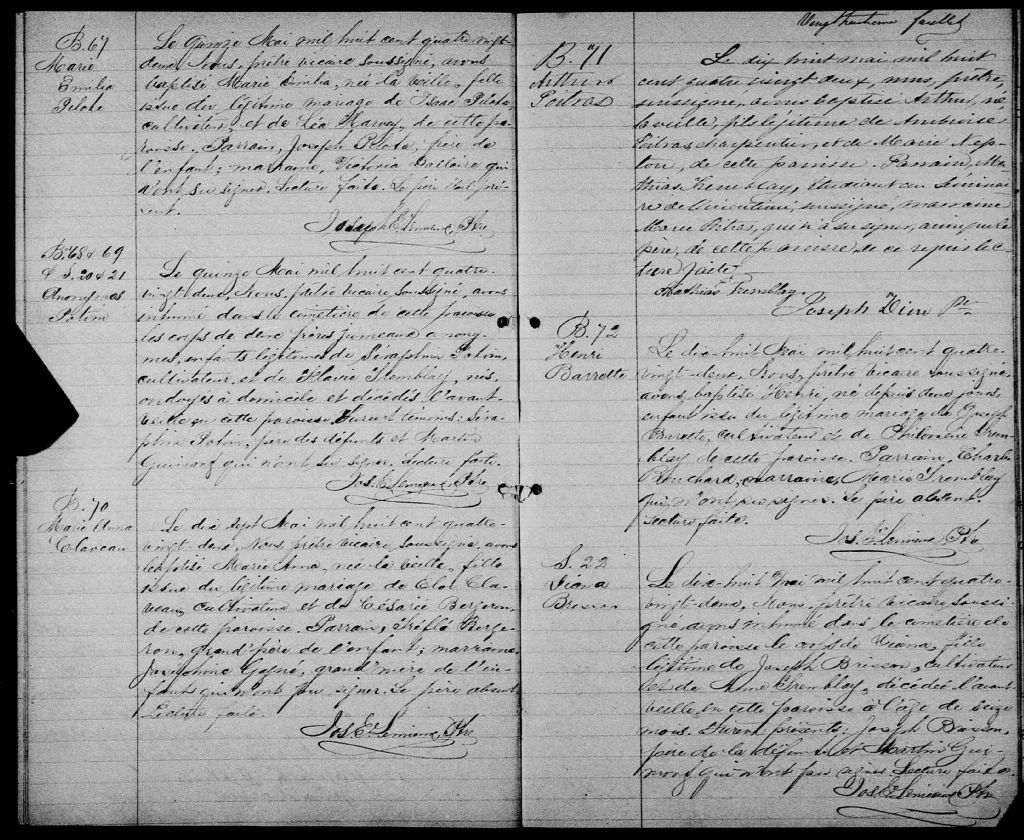 B. 67
Marie
Emilia
Pilote
Le quinze Mai mil huit cent quatre vingt-
deux, Nous, prêtre vicaire soussigné, avons
baptisé Marie Emilia, née la veille, fille
issue du légitime mariage de Isaïe Pilote
cultivateur, et de Léa Harvey, de cette pa-
roisse. Parrain, Joseph Pilote, père de
l'enfant; marraine, Victoria Dallaire qui
n'ont su signer. Lecture faite. Le père était pré-
sent.
Joseph E. Lemieux, Ptre
B. 68 & 69
& S. 20 & 21
Anonymes
Potvin
Le quinze Mai mil huit cent quatre-
vingt-deux, Nous, prêtre vicaire soussigné, avons
inhumé dans le cimetière de cette paroisse
les corps de deux frères jumeaux anony-
mes, enfants légitimes de Séraphin Potvin,
cultivateur, et de Flavie Tremblay, nés,
ondoyés à domicile et décédés l'avant
veille en cette paroisse. Furent témoins: Séra-
phin Potvin, père des défunts et Martin
Guimond qui n'ont su signer. Lecture faite.
Jos. E. Lemieux, Ptre
B. 70
Marie Anna
Claveau
Le dix sept Mai mil huit cent quatre-
vingt-deux, Nous prêtre vicaire, soussigné, avons
baptisé Marie Anna, née la veille, fille
issue du légitime mariage de Cla-
veau, cultivateur et de Césarie Bergeron,
de cette paroisse. Parrain, Théflé Berge-
ron, grand'père de l'enfant; marraine
Joséphine Gagné, grand'mère de l'en-
fant qui n'ont pu signer. Le père absent
Lecture faite.
Jos. E. Lemieux, Ptre
Vingt huitième feuillet
B. 71
Arthur
Poitras
Le dix huit mai mil huit
cent quatre vingt deux, nous, prêtre,
soussigné, avons baptisé Arthur, né
la veille, fils légitime de Ambroise
Poitras charpentier, et de Marie Nep-
ton, de cette paroisse. Parrain, Ma-
thias Tremblay, étudiant au Séminai-
re de Chicoutimi, soussigné, marraine
Marie Poitras, qui n'a su signer, ainsi que le
père, de cette paroisse de ce requis lec-
ture faite.
Mathias Tremblay.
Joseph Dion Ptre
B. 72
Henri
Barrette
Le dix-huit Mai mil huit cent quatre-
vingt-deux, Nous, prêtre vicaire soussigné,
avons baptisé Henri, né depuis deux jours,
enfant issu du légitime mariage de Joseph
Barette, cultivateur et de Philomène Trem-
blay de cette paroisse. Parrain, Charles
Bouchard, marraine, Marie Tremblay
qui n'ont pu signer. Le père absent.
Lecture faite.
Jos. E. Lemieux Ptre
S. 22
Diana
Brisson
Le dix-huit Mai mil huit cent quatre-
vingt-deux, Nous, prêtre vicaire soussi-
gné avons inhumé dans le cimetière de
cette paroisse le corps de Diana, fille
légitime de Joseph Brisson, cultivateur
et de Anne Tremblay, décédée l'avant
veille en cette paroisse à l'âge de seize
mois. Furent présents: Joseph Brisson,
père de la défunte et Martin Gui-
mond qui n'ont pas signé. Lecture faite.
Jos. E. Lemieux, Ptre